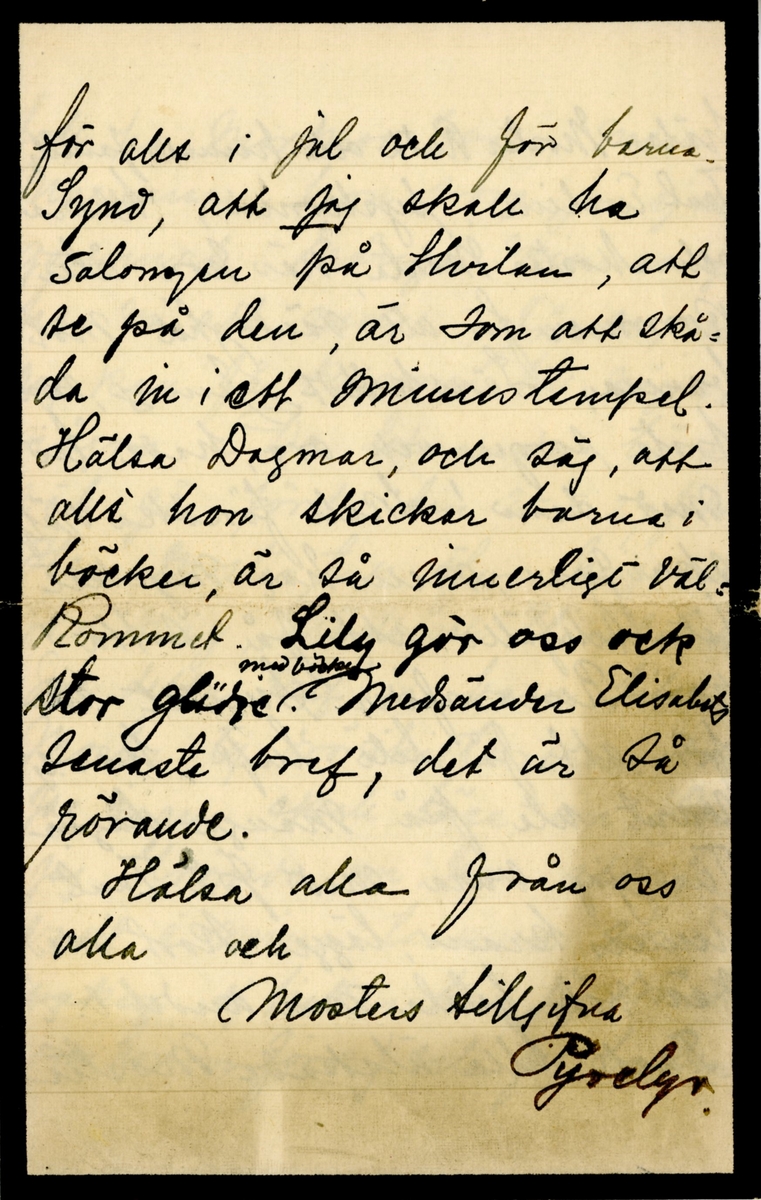 för allt i jul och för barna.
Synd, att jag skall ha
salongen på Hvilan, att
se på den, är som att skå=
da in i ett Minnestempel.
Hälsa Dagmar, och säg, att
allt hon skickar barna i
böcker, är så innerligt väl=
kommet. Lily gör oss ock
med böcker
stor glädje. Medsänder Elisabets
senaste bref, det är så
rörande.
Hälsa alla från oss
alla och
Mosters tillgifna